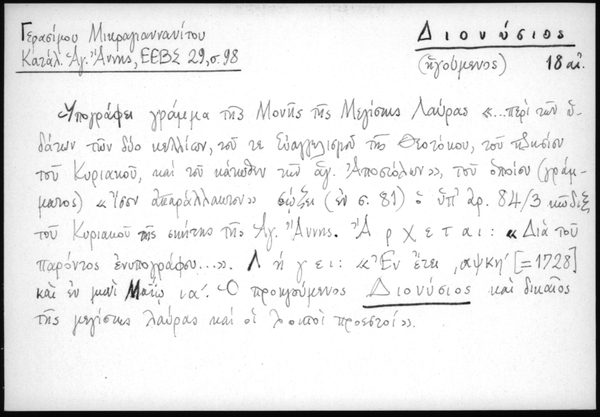 Γερασίμου Μικραγιαννανίτου
Κατάλ. Ἁγ. Ἄννης, ΕΕΒΣ 29, σ. 98
Διονύσιος
(ἡγούμενος) 18 αἰ.
Ὑπογράφει γράμμα τῆς Μονῆς τῆς Μεγίστης Λαύρας «...περὶ τῶν ὑ-
δάτων τῶν δύο κελλίων, τοῦ τε Εὐαγγελισμοῦ τῆς Θεοτόκου, τοῦ πλησίον
τοῦ Κυριακοῦ, καὶ τοῦ κάτωθεν τῶν ἁγ. Ἀποστόλων», τοῦ ὁποίου (γράμ-
ματος) «Ἴσον ἀπαράλλακτον» σῴζει (ἐν σ. 81) ὁ ὑπ' ἀρ. 84/3 κῶδιξ
τοῦ Κυριακοῦ τῆς σκήτης τῆς Ἁγ. Ἄννης. Ἄρχεται: «Διὰ τοῦ
παρόντος ἐνυπογράφου...». Λήγει: «Ἐν ἔτει ͵αψκη' [=1728]
καὶ ἐν μηνὶ Μαΐῳ ια'. Ὁ προηγούμενος Διονύσιος καὶ δικαῖος
τῆς μεγίστης λαύρας καὶ οἱ λοιποὶ προεστοί».